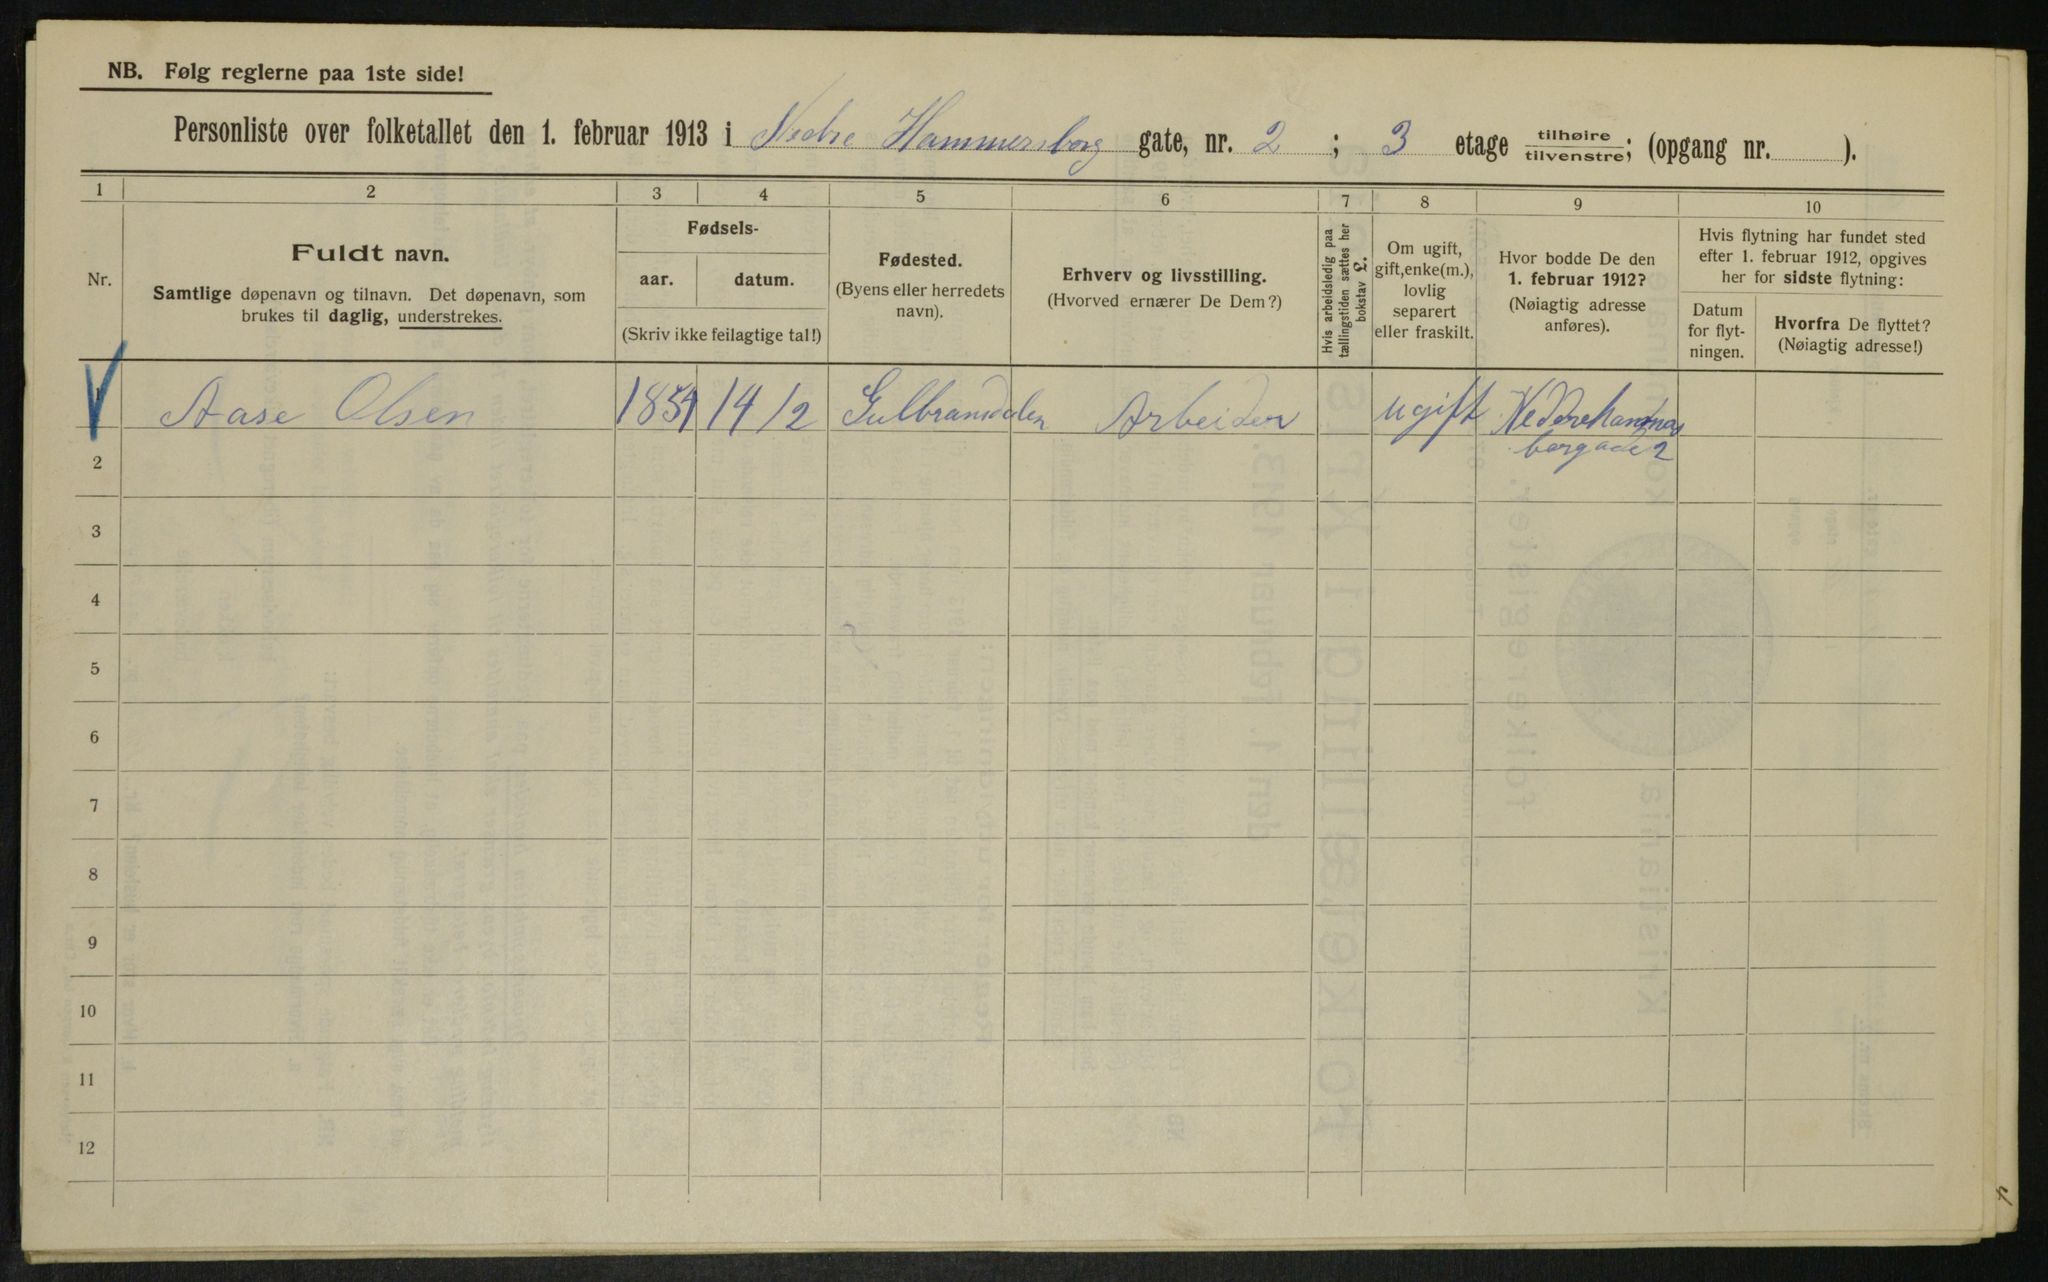 NB. Følg reglerne paa 1ste side!
Personliste over folketallet den 1. februar 1913 i Nedre Hammersborg gate, nr. 2 ; 3 etage tilhøire/tilvenstre; (opgang nr. ).
1 2 3 4 5 6 7 8 9 10
Nr.
Fuldt navn.
Samtlige døpenavn og tilnavn. Det døpenavn, som
brukes til daglig, understrekes.
Fødsels-
aar. datum.
(Skriv ikke feilagtige tal!)
Fødested.
(Byens eller herredets
navn).
Erhverv og livsstilling.
(Hvorved ernærer De Dem?)
Hvis arbeidsledig paa
tællingstiden sættes her
bokstav L.
Om ugift,
gift, enke(m.),
lovlig
separert
eller fraskilt.
Hvor bodde De den
1. februar 1912?
(Nøiagtig adresse
anføres).
Hvis flytning har fundet sted
efter 1. februar 1912, opgives
her for sidste flytning:
Datum
for flyt-
ningen.
Hvorfra De flyttet?
(Nøiagtig adresse!)
Aase Olsen 14/2 Gulbransdalen Arbeider ugift Nederehammers
borgade 2
2
3
4
5
6
7
8
9
10
11
12